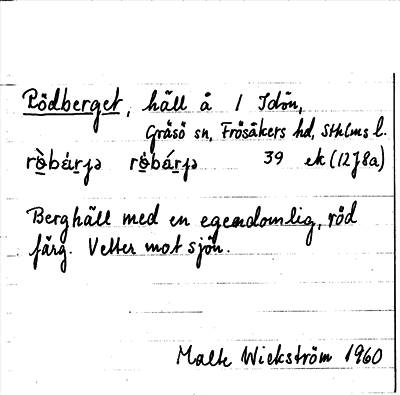 Rödberget, häll å 1 Idön,
Gräsö sn, Frösåkers hd, Sthlms l.
39 ek (12J8a)
Berghäll med en egendomlig, röd
färg. Vetter mot sjön.
Malte Wickström 1960